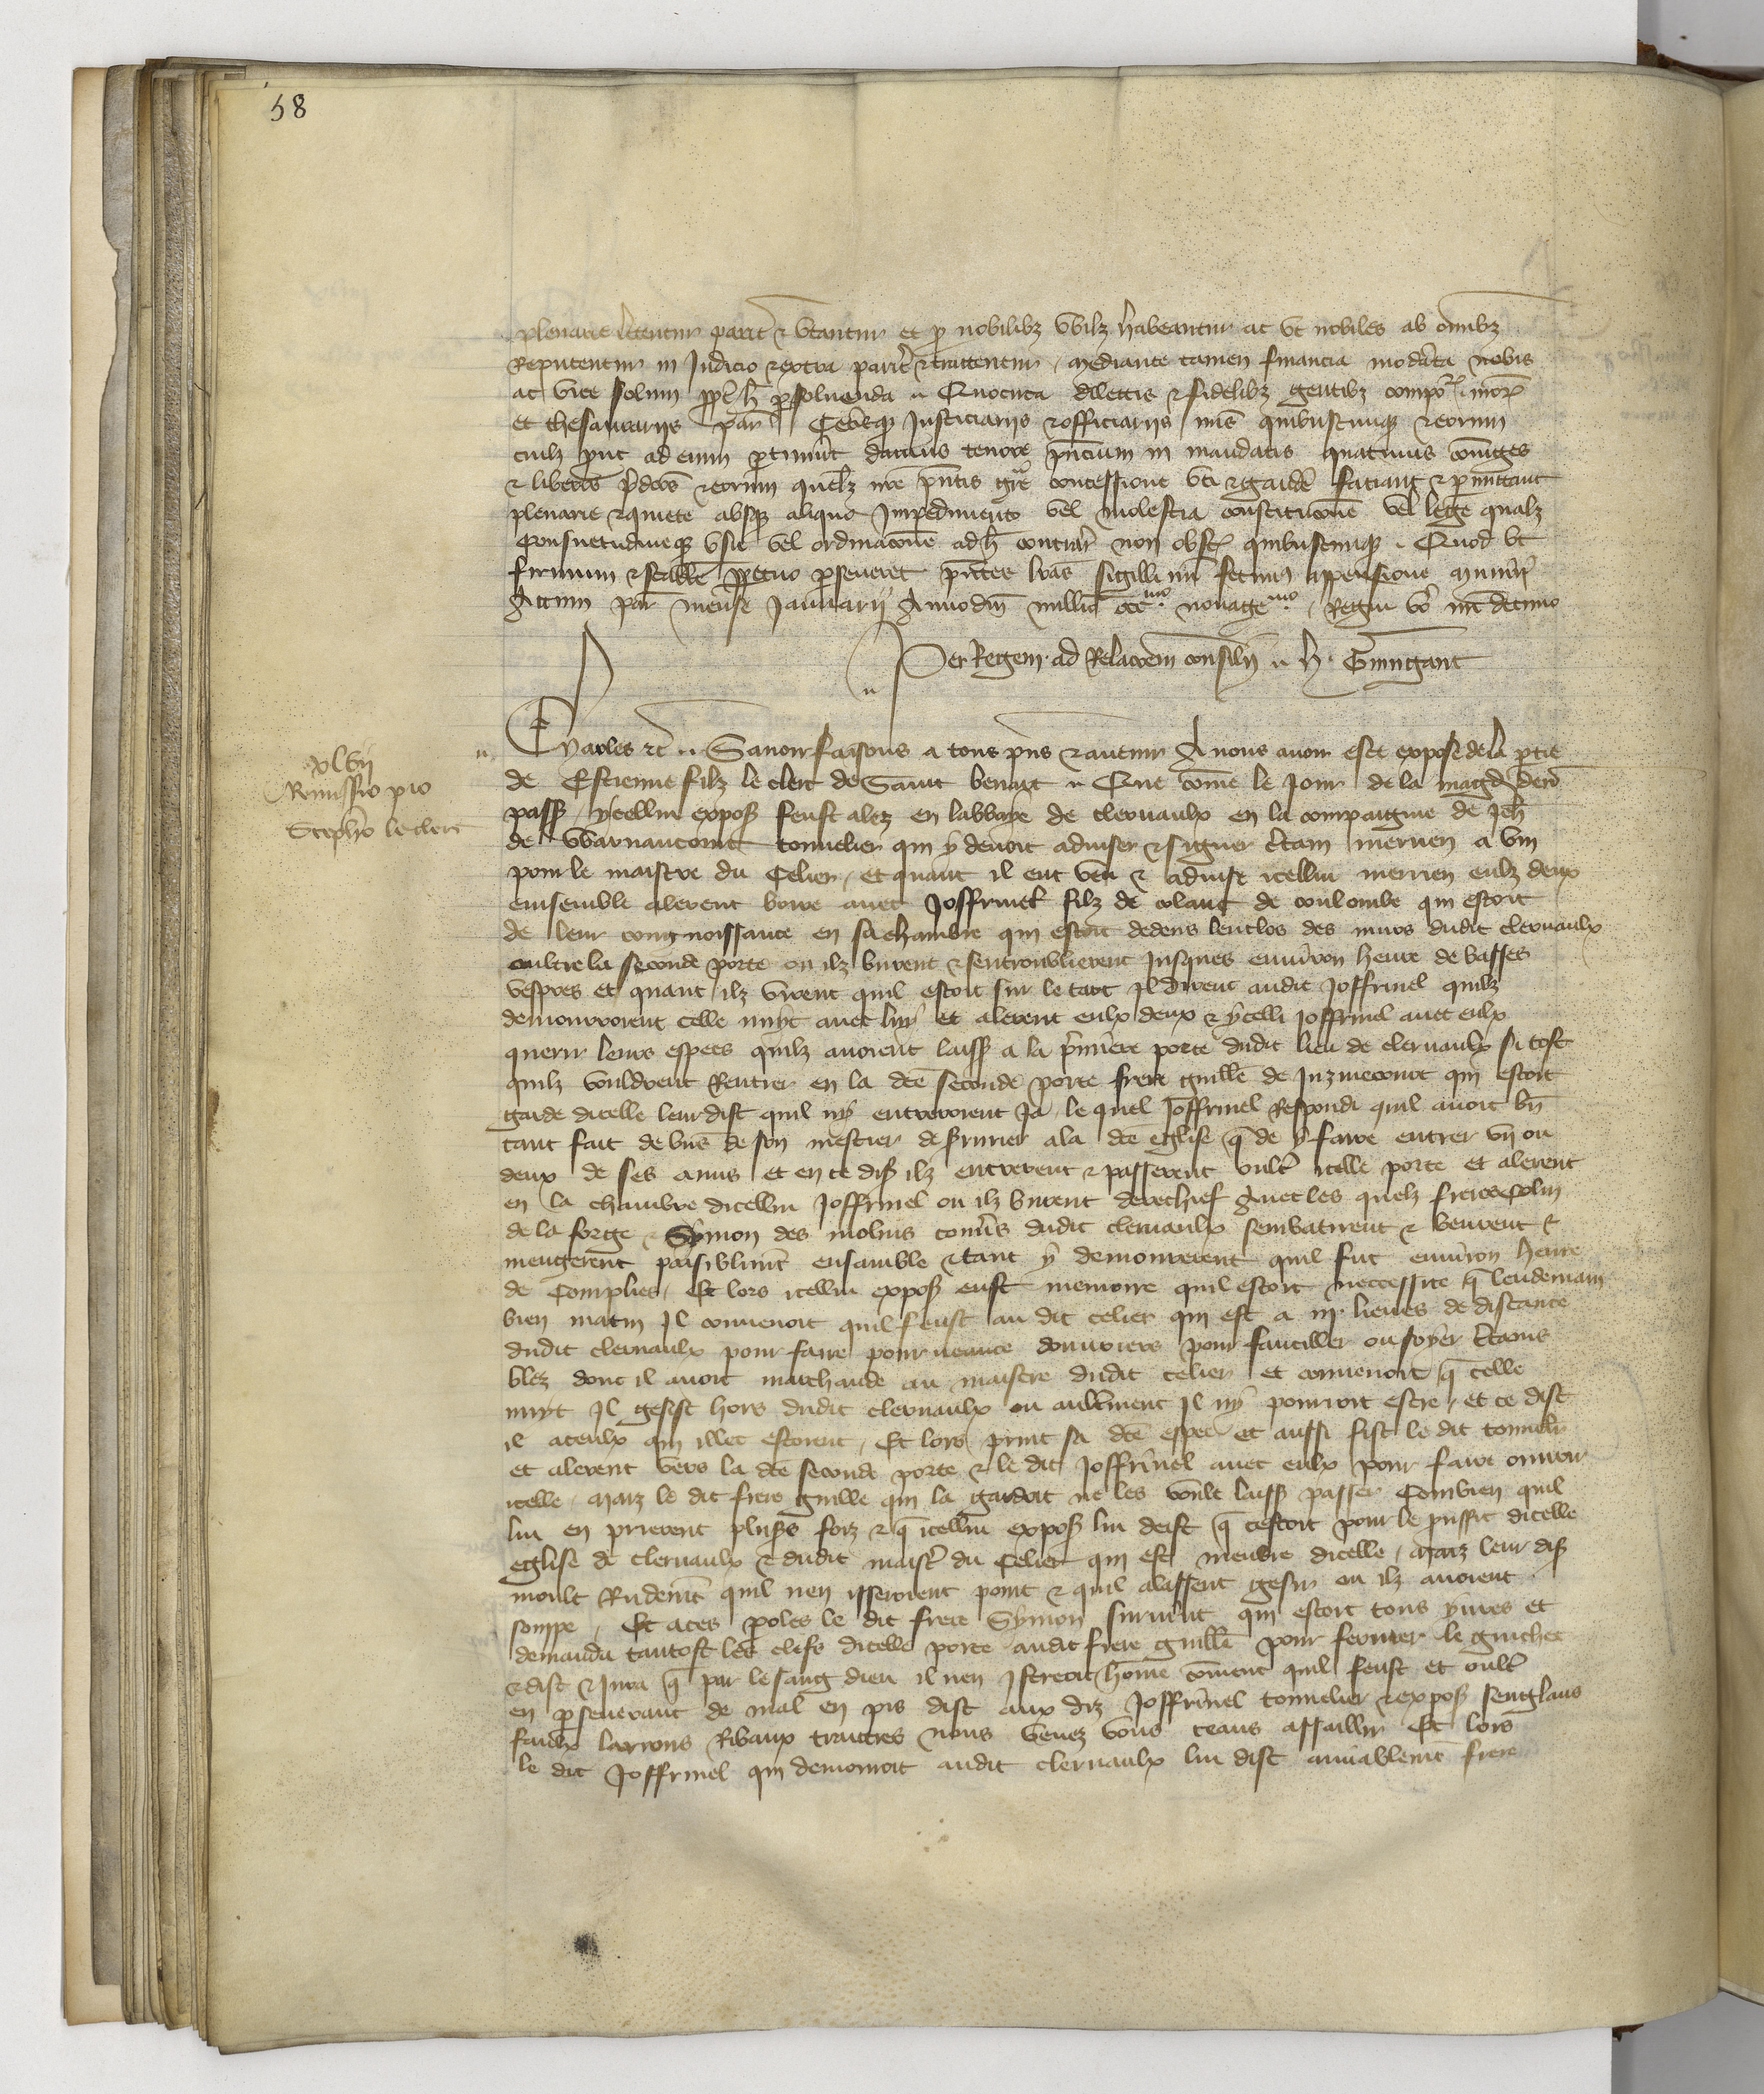 58
plenarie letentur pariter & utantur et pro nobilibz ubilz habeantur ac ut nobiles ab omnibz
Reputentur in Judicio & extra pariter & tractentur, mediante tamen financia moderata nobis
ac vice solum propter hoc persolvenda. Quocirca dilectis & fidelibz gentibz compotorum nostrorum
et thesaurariis paris Ceterisque Justiciariis & officiariis nostris quibuscumque & eorum
cuilz prout ad eum pertinuerit damus tenore presentium in mandatis quatinus coniuges
& liberos predictos & eorum quemlz nostre presentis gracie concessione uti & gaudere faciant & permittant
plenarie & quiete absque aliquo Impedimento vel molestia constitucione vel lege qualz
Consuetudineque usu vel ordinacione ad hoc contrariis non obstantibus quibuscumque. Quod ut
firmum & stabile perpetuo perseveret presentes literas sigilli nostri fecimus appensione muniri
Actum paris mense Januarij Anno domini millio ccc.mo nonage.mo, Regni vero nostri decimo
Per Regem ad Relacionem consilij. H. Guingant
xlvij
Remissio pro
Stepho le clerc
Charles etc. Savoir faisons a tous presens & avenir A nous avoir este expose de la partie
de Estienne filz le clerc de Saint benoit. Que comme le Jour de la magd. derr.
passe, ycellui exposant feust alez en labbaye de clervaulx en la compaignie de Jeh.
de Warnancourt tonnelier qui y devoit adviser & signer certain merrien a vin
pour le maistre du Celier, et quant il eut veu & advise icellui merrien eulz deux
ensemble alerent boire avec Joffrinel filz de colant de coulombe qui estoit
de leur congnoissance en sa chambre qui estoit dedens lenclos des murs dudit clervaulx
oultre la seconde porte ou ilz burent & sentroublierent Jusques environ heure de basses
vespres et quant ilz virent quil estoit sur le tart Il dirent audit Joffrinel quilz
demourroient celle nuyt avec luy et alerent eulx deux & ycelli Joffrinel avec eulx
querir leurs espees quilz avoient laissees a la premiere porte dudit lieu de clervaulx si tost
quilz vouldrent Rentrer en la dicte seconde porte frere guille de Juzinecourt qui estoit
garde dicelle leur dist quil ny entreroient Ja, le quel Joffrinel Respondi quil avoit bn
tant fait de biens de son mestier de serrurier a la dicte eglise que de y faire entrer un ou
deux de ses amis et en ce disant ilz entrerent & passerent oultre icelle porte et alerent
en la chambre dicellui Joffrinel ou ilz burent derechief Avec les quelz freres Colin
de la forge & Symon des molins convers dudit clervaulx sembatirent & beurent &
mengerent paisiblement ensamble & tant y demourerent quil fut environ heure
de Complies, Et lors icellui exposant eust memoire quil estoit neccessite que lendemain
bien matin Il convenoit quil feust au dit celier qui est a iij. lieues de distance
dudit clervaulx pour faire pourveance douvriers pour fauciller ou soyer certains
blez dont il avoit marchande au maistre dudit celier et convenoit que celle
nuyt Il gesist hors dudit clervaulx ou aultrement Il ny pourroit estre, et ce dist
il a ceulx qui illec estoient, Et lors print sa dicte espee et aussi fist le dit tonnelier
et alerent vers la dicte seconde porte & le dit Joffrinel avec eulx pour faire ouvrir
icelle, Maiz le dit frere guille qui la gardoit ne les voult laissier passer Combien quil
lui en prierent plusieurs foiz & que icellui exposant lui deist que cestoit pour le prouffit dicelle
eglise de clervaulx & dudit maistre du Celier qui est membre dicelle, Maiz leur dist
moult Rudement quil nen isseroient point & quil alassent gesir ou ilz avoient
souppe, Et a ces paroles le dit frere Symon survint qui estoit tous yvres et
demanda tantost les clefs dicelle porte audit frere guille pour fermer le guichet
& dist & Jura que par le sang dieu il nen Istroit homme coment quil feust et oultre
en perseverant de mal en pis dist aux diz Joffrinel tonnelier & exposant senglans
faulx larrons Ribaux traictres nous venez vous ceans assaillir Et lors
le dit Joffrinel qui demouroit audit clervaulx lui dist amiablement frere